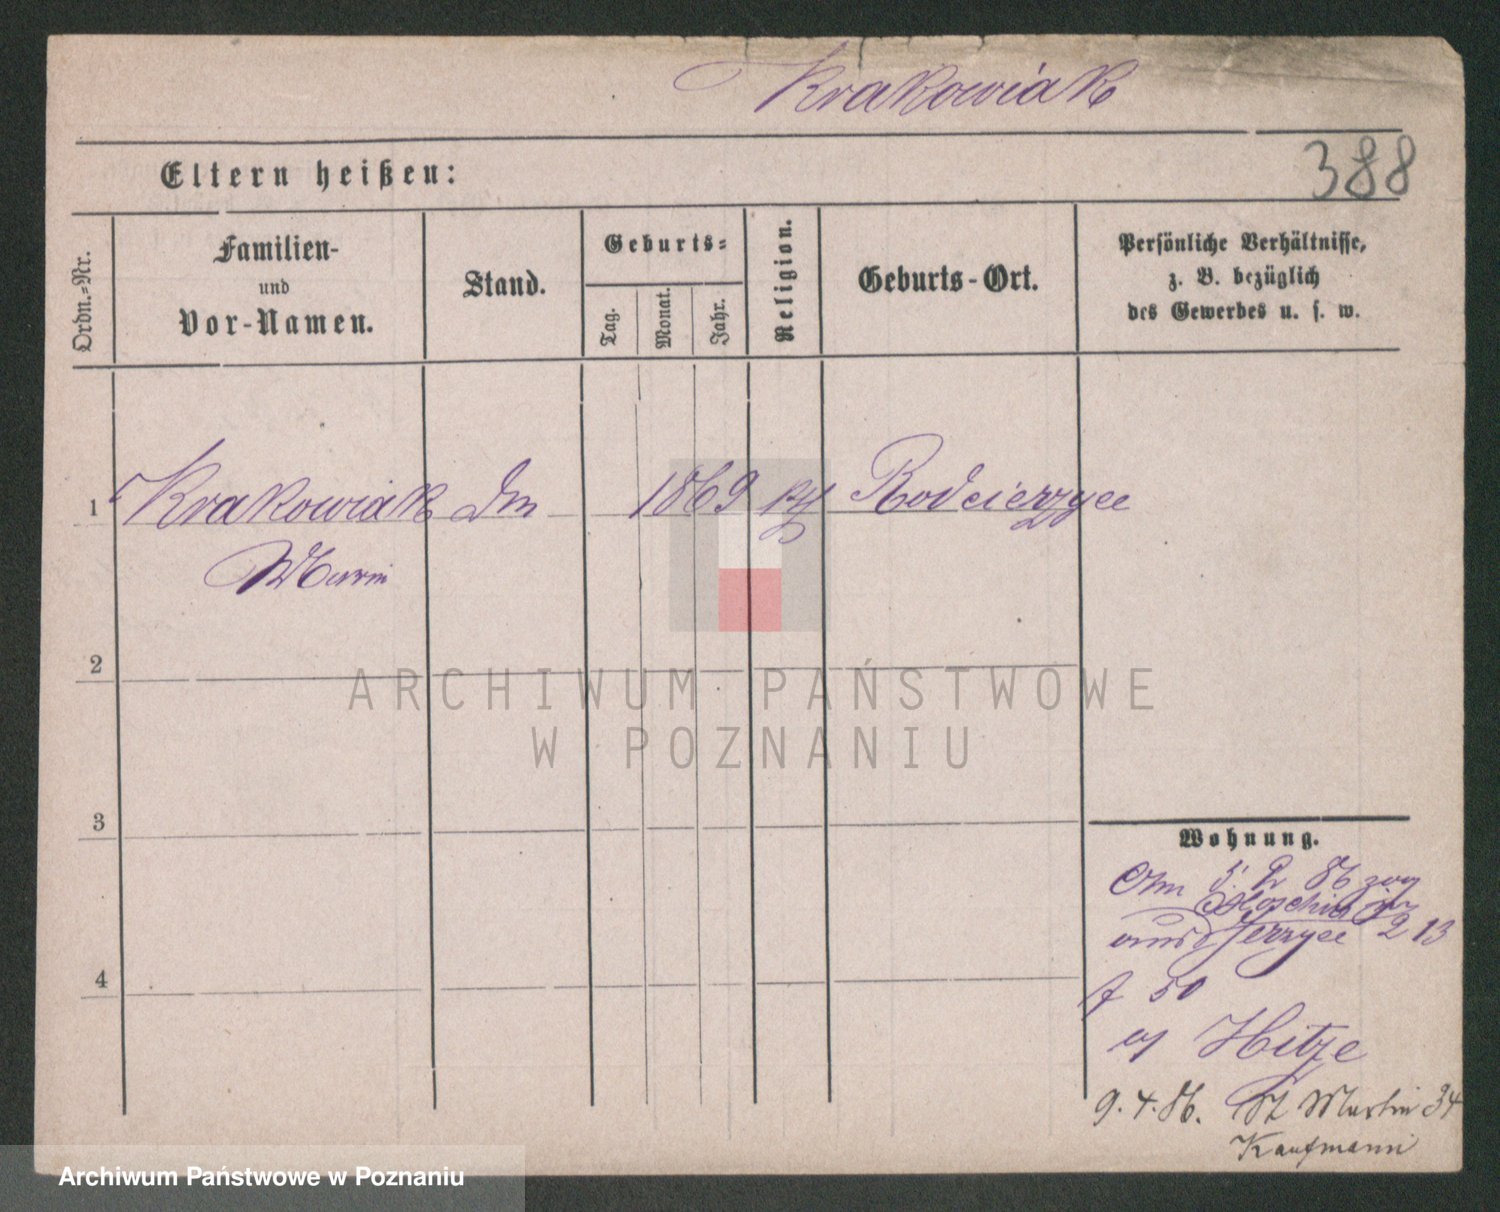 Krakowiak
388
Eltern heißen:
Ordn.-Nr.
Familien-
und
Vor-Namen.
Stand.
Geburts-
Tag.
Monat.
Jahr.
Religion.
Geburts-Ort.
Persönliche Verhältnisse,
z. B. bezüglich
des Gewerbes u. s. w.
1
Krakowiak
1869
2
3
4
Wohnung.
Jerzyce 213
50
Hitze
9. 4. 86. St Martin 34
Kaufmann
ARCHIWUM PAŃSTWOWE
W POZNANIU
Archiwum Państwowe w Poznaniu